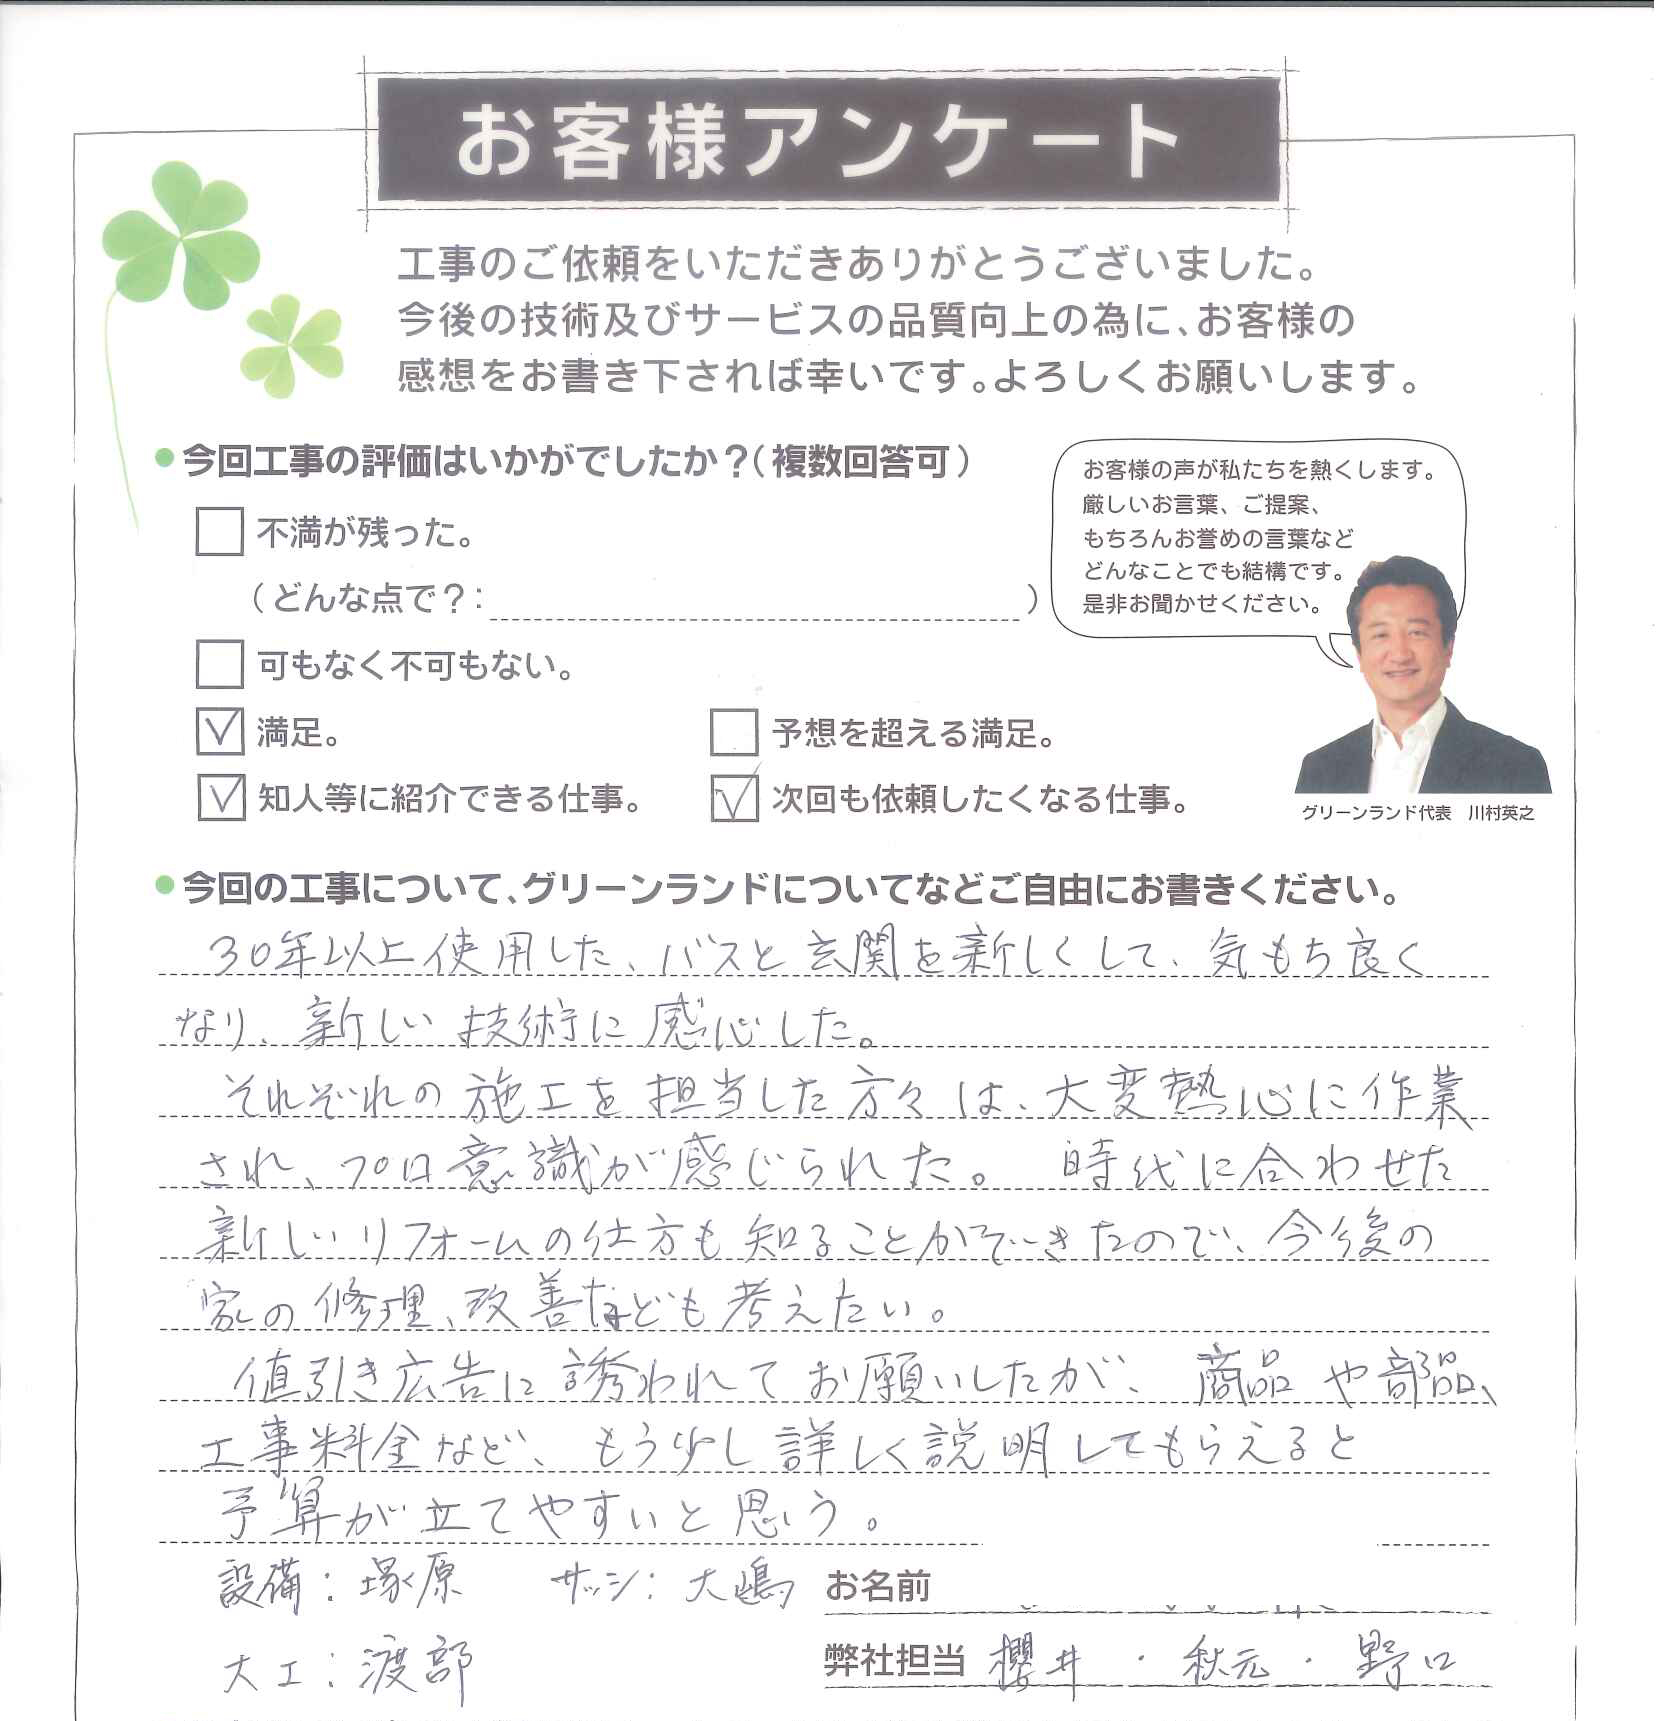 お客様アンケート
工事のご依頼をいただきありがとうございました。
今後の技術及びサービスの品質向上の為に、お客様の
感想をお書き下されば幸いです。よろしくお願いします。
●今回工事の評価はいかがでしたか？（複数回答可）
不満が残った。
（どんな点で？： ）
可もなく不可もない。
満足。
予想を超える満足。
知人等に紹介できる仕事。
次回も依頼したくなる仕事。
お客様の声が私たちを熱くします。
厳しいお言葉、ご提案、
もちろんお誉めの言葉など
どんなことでも結構です。
是非お聞かせください。
グリーンランド代表 川村英之
●今回の工事について、グリーンランドについてなどご自由にお書きください。
30年以上使用した、バスと玄関を新しくして、気もち良く
なり、新しい技術に感心した。
それぞれの施工を担当した方々は、大変熱心に作業
され、プロ意識が感じられた。 時代に合わせた
新しいリフォームの仕方も知ることができたので、今後の
家の修理、改善なども考えたい。
値引き広告に誘われてお願いしたが、商品や部品、
工事料金など、もう少し詳しく説明してもらえると
予算が立てやすいと思う。
設備：塚原 サッシ：大嶋
お名前
大工：渡部
弊社担当 櫻井・秋元・野口